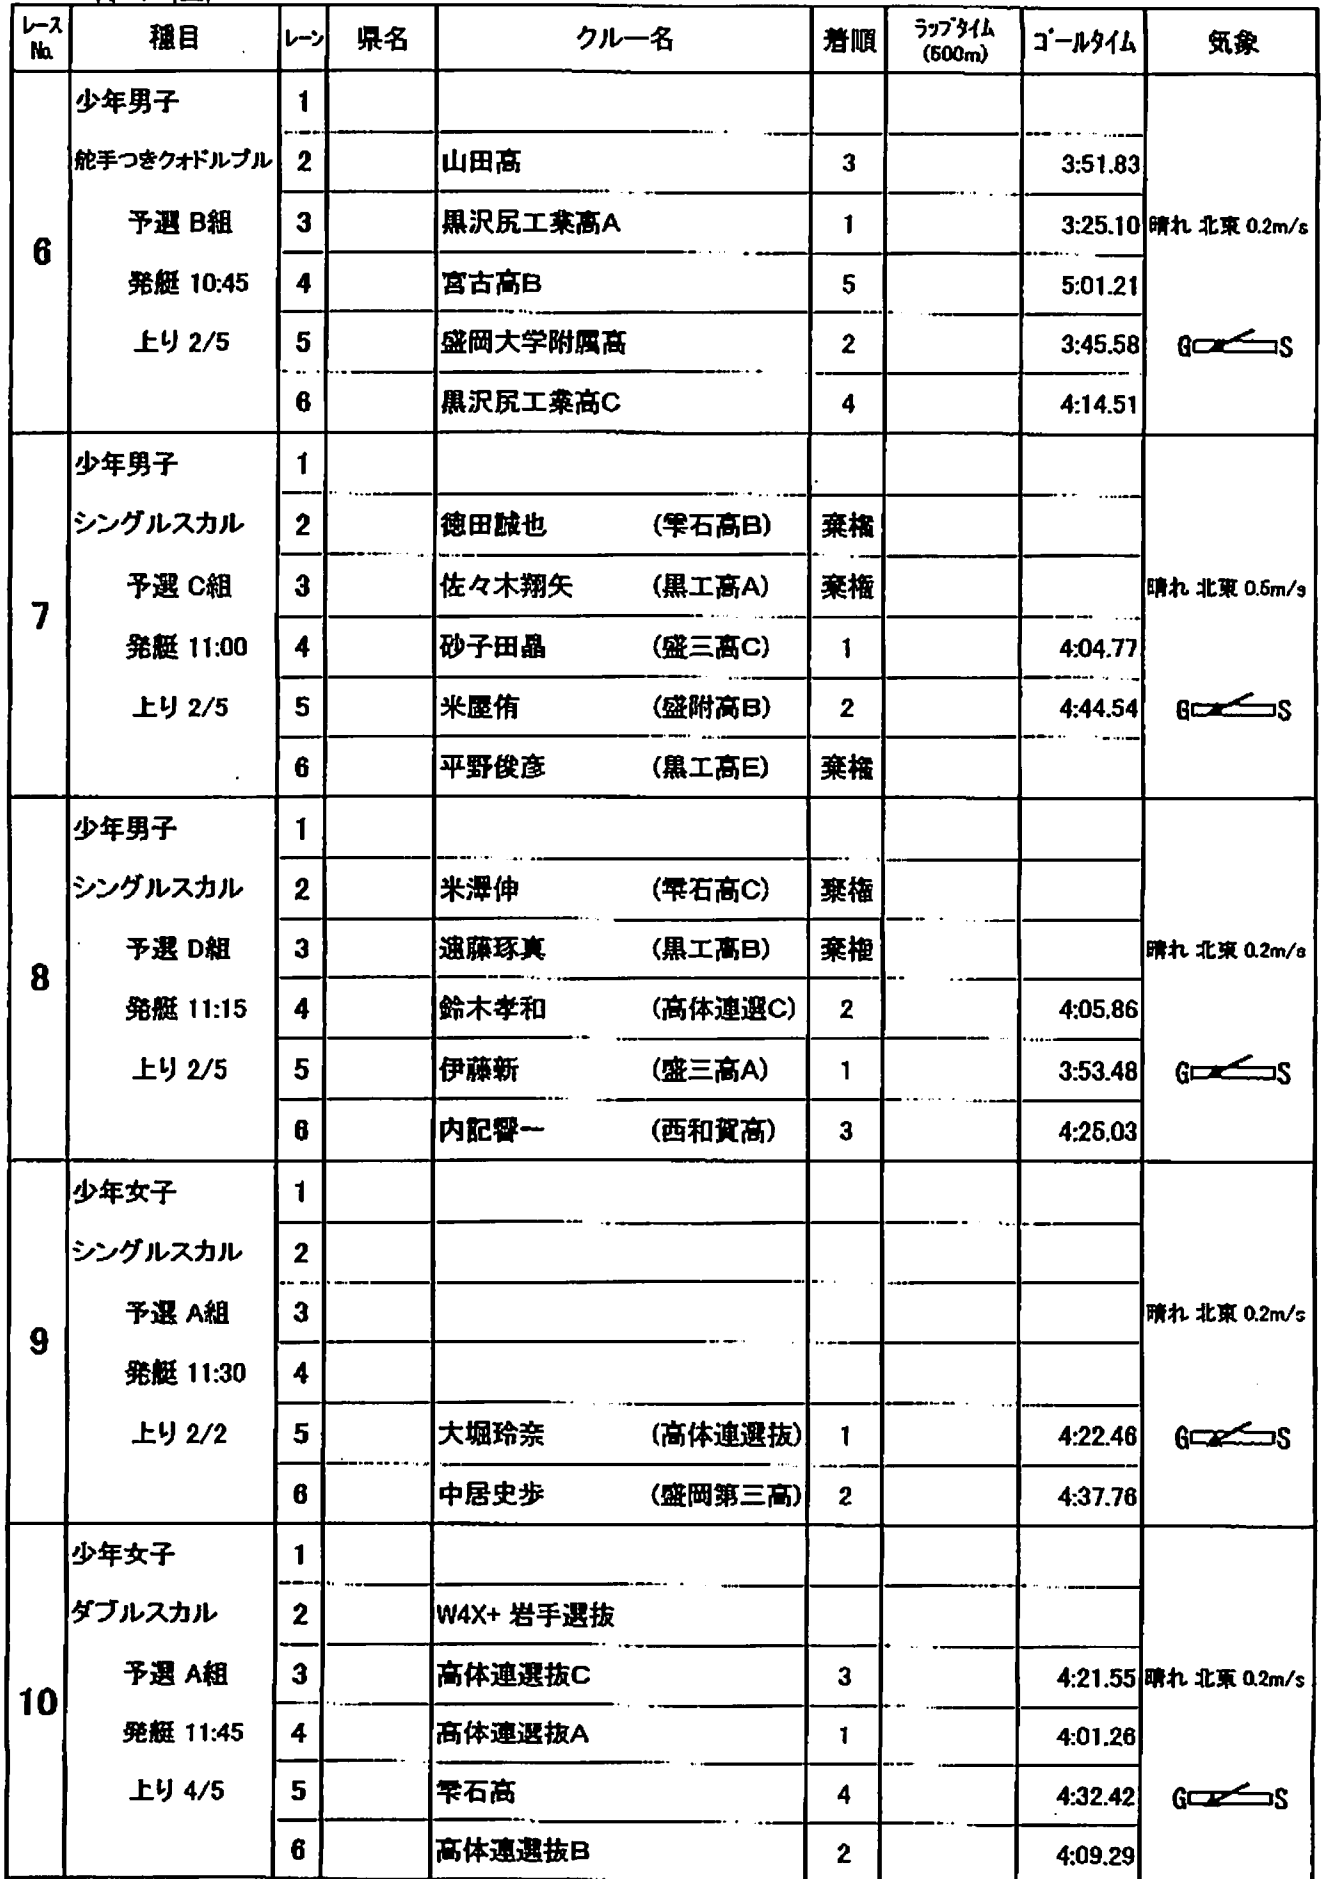 レース No. 種目 レーン 県名 クルー名 着順 ラップタイム (500m) ゴールタイム 気象
6
少年男子 1
舵手つきクォドルプル 2 山田高 3 3:51.83
予選 B組 3 黒沢尻工業高A 1 3:25.10 晴れ 北東 0.2m/s
発艇 10:45 4 宮古高B 5 5:01.21
上り 2/5 5 盛岡大学附属高 2 3:45.58 G S
6 黒沢尻工業高C 4 4:14.51
7
少年男子 1
シングルスカル 2 徳田誠也 (雫石高B) 棄権
予選 C組 3 佐々木翔矢 (黒工高A) 棄権 晴れ 北東 0.5m/s
発艇 11:00 4 砂子田晶 (盛三高C) 1 4:04.77
上り 2/5 5 米屋侑 (盛附高B) 2 4:44.54 G S
6 平野俊彦 (黒工高E) 棄権
8
少年男子 1
シングルスカル 2 米澤伸 (雫石高C) 棄権
予選 D組 3 遠藤琢真 (黒工高B) 棄権 晴れ 北東 0.2m/s
発艇 11:15 4 鈴木孝和 (高体連選C) 2 4:05.86
上り 2/5 5 伊藤新 (盛三高A) 1 3:53.48 G S
6 内記響一 (西和賀高) 3 4:25.03
9
少年女子 1
シングルスカル 2
予選 A組 3 晴れ 北東 0.2m/s
発艇 11:30 4
上り 2/2 5 大堀玲奈 (高体連選抜) 1 4:22.46 G S
6 中居史歩 (盛岡第三高) 2 4:37.76
10
少年女子 1
ダブルスカル 2 W4X+ 岩手選抜
予選 A組 3 高体連選抜C 3 4:21.55 晴れ 北東 0.2m/s
発艇 11:45 4 高体連選抜A 1 4:01.26
上り 4/5 5 雫石高 4 4:32.42 G S
6 高体連選抜B 2 4:09.29